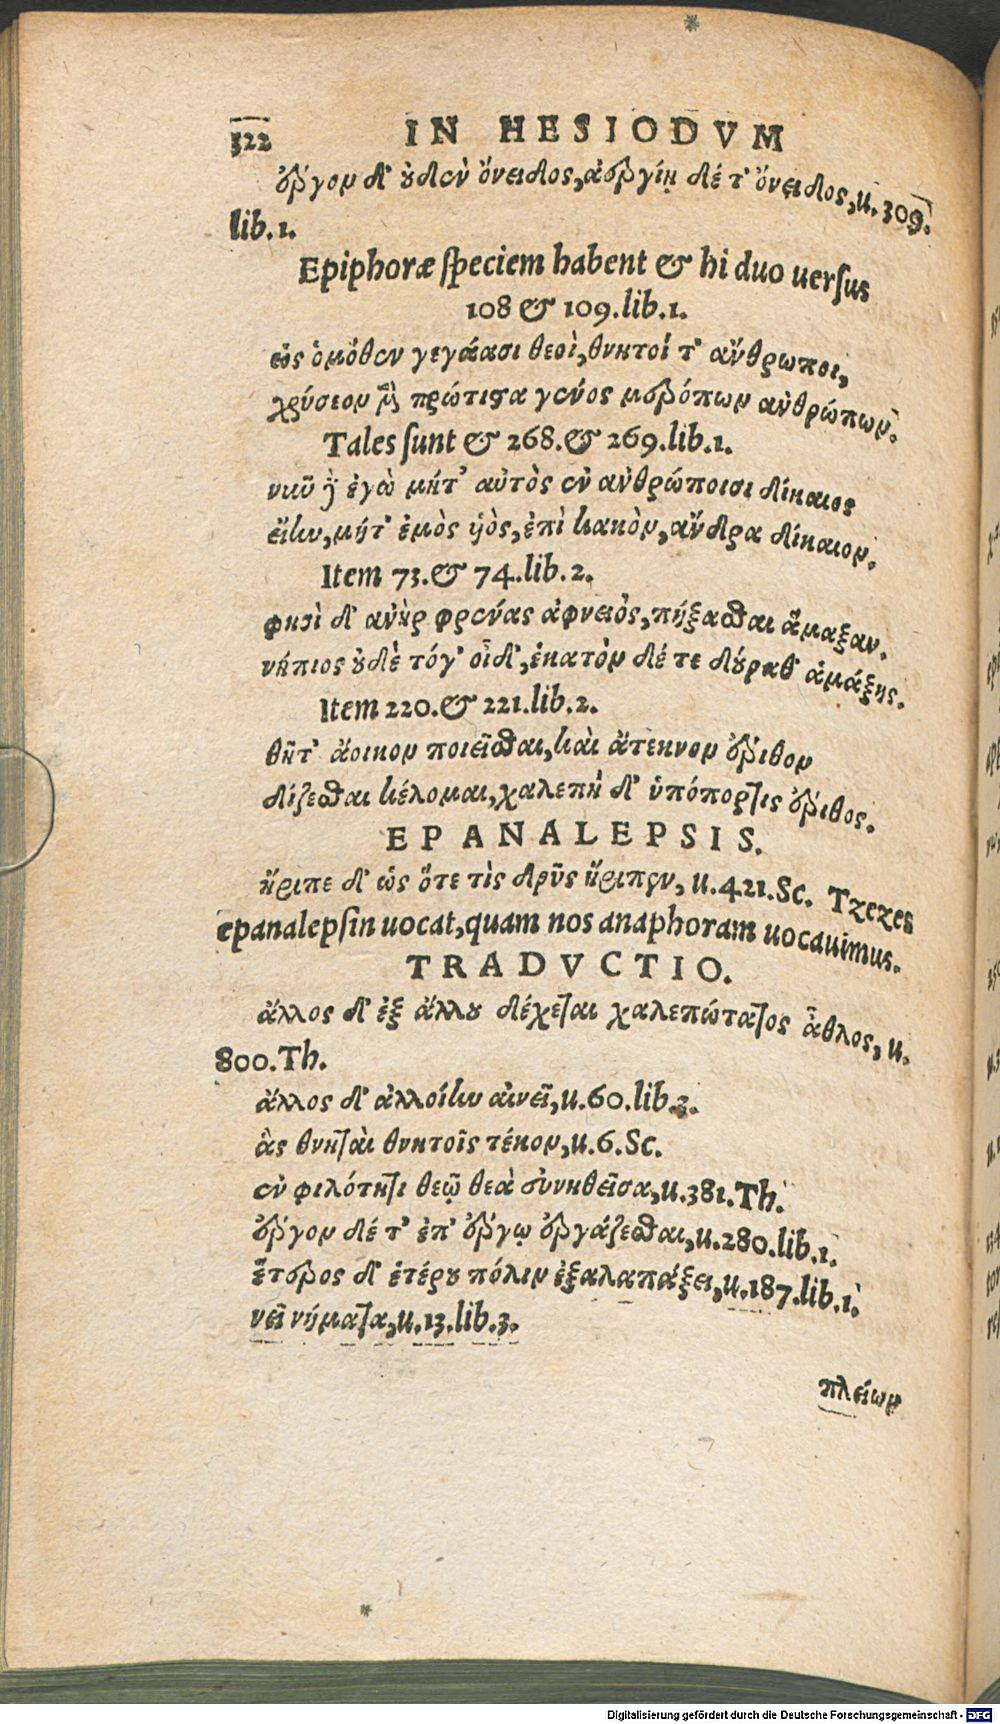 322 IN HESIODVM
ἔργον δ' οὐδὲν ὄνειδος, ἀεργίη δέ τ' ὄνειδος, u. 309.
lib. 1.
Epiphoræ speciem habent & hi duo uersus
108 & 109. lib. 1.
ὡς ὁμόθεν γεγάασι θεοὶ, θνητοί τ' ἄνθρωποι,
χρύσεον μὲν πρώτιστα γένος μερόπων ἀνθρώπων.
Tales sunt & 268. & 269. lib. 1.
νῦν δὲ ἐγὼ μήτ' αὐτὸς ἐν ἀνθρώποισι δίκαιος
εἴην, μήτ' ἐμὸς ὑὸς, ἐπὶ κακὸν, ἄνδρα δίκαιον.
Item 73. & 74. lib. 2.
φησὶ δ' ἀνὴρ φρένας ἀφνειὸς, πήξασθαι ἅμαξαν.
νήπιος οὐδὲ τόγ' οἶδ', ἑκατὸν δέ τε δούραθ' ἁμάξης.
Item 220. & 221. lib. 2.
θῆτ' ἄοικον ποιεῖσθαι, καὶ ἄτεκνον ἔριθον
δίζεσθαι κέλομαι, χαλεπὴ δ' ὑπόπορτις ἔριθος.
EPANALEPSIS.
ἤριπε δ' ὡς ὅτε τὶς δρῦς ἤριπεν, u. 421. Sc. Tzezes
epanalepsin uocat, quam nos anaphoram uocauimus.
TRADVCTIO.
ἄλλος δ' ἐξ ἄλλου δέχεται χαλεπώτατος ἆθλος, u.
800. Th.
ἄλλος δ' ἀλλοίην αἰνεῖ, u. 60. lib. 3.
ἃς θνηταὶ θνητοῖς τέκον, u. 6. Sc.
ἐν φιλότητι θεῷ θεὰ συνηθεῖσα, u. 381. Th.
ἔργον δέ τ' ἐπ' ἔργῳ ἐργάζεσθαι, u. 280. lib. 1.
ἕτερος δ' ἑτέρου πόλιν ἐξαλαπάξει, u. 187. lib. 1.
νεῖ νήματα, u. 13. lib. 3.
πλείων
Digitalisierung gefördert durch die Deutsche Forschungsgemeinschaft - DFG